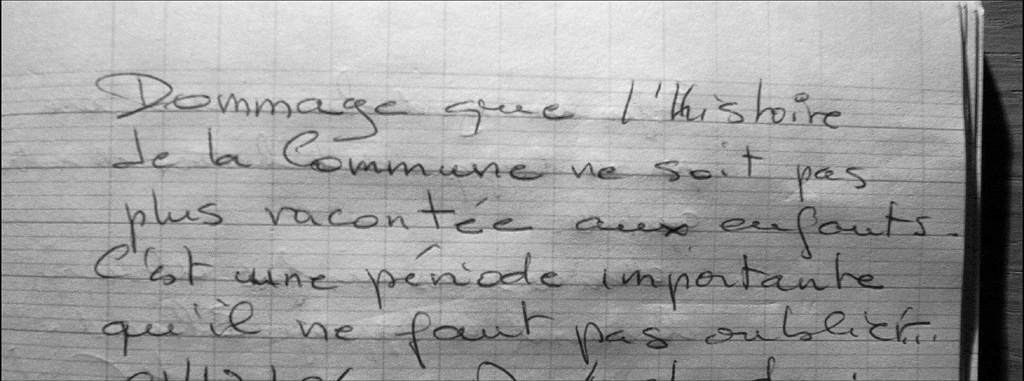 Dommage que l'Histoire
de la Commune ne soit pas
plus racontée aux enfants.
C'est une période importante
qu'il ne faut pas oublier...